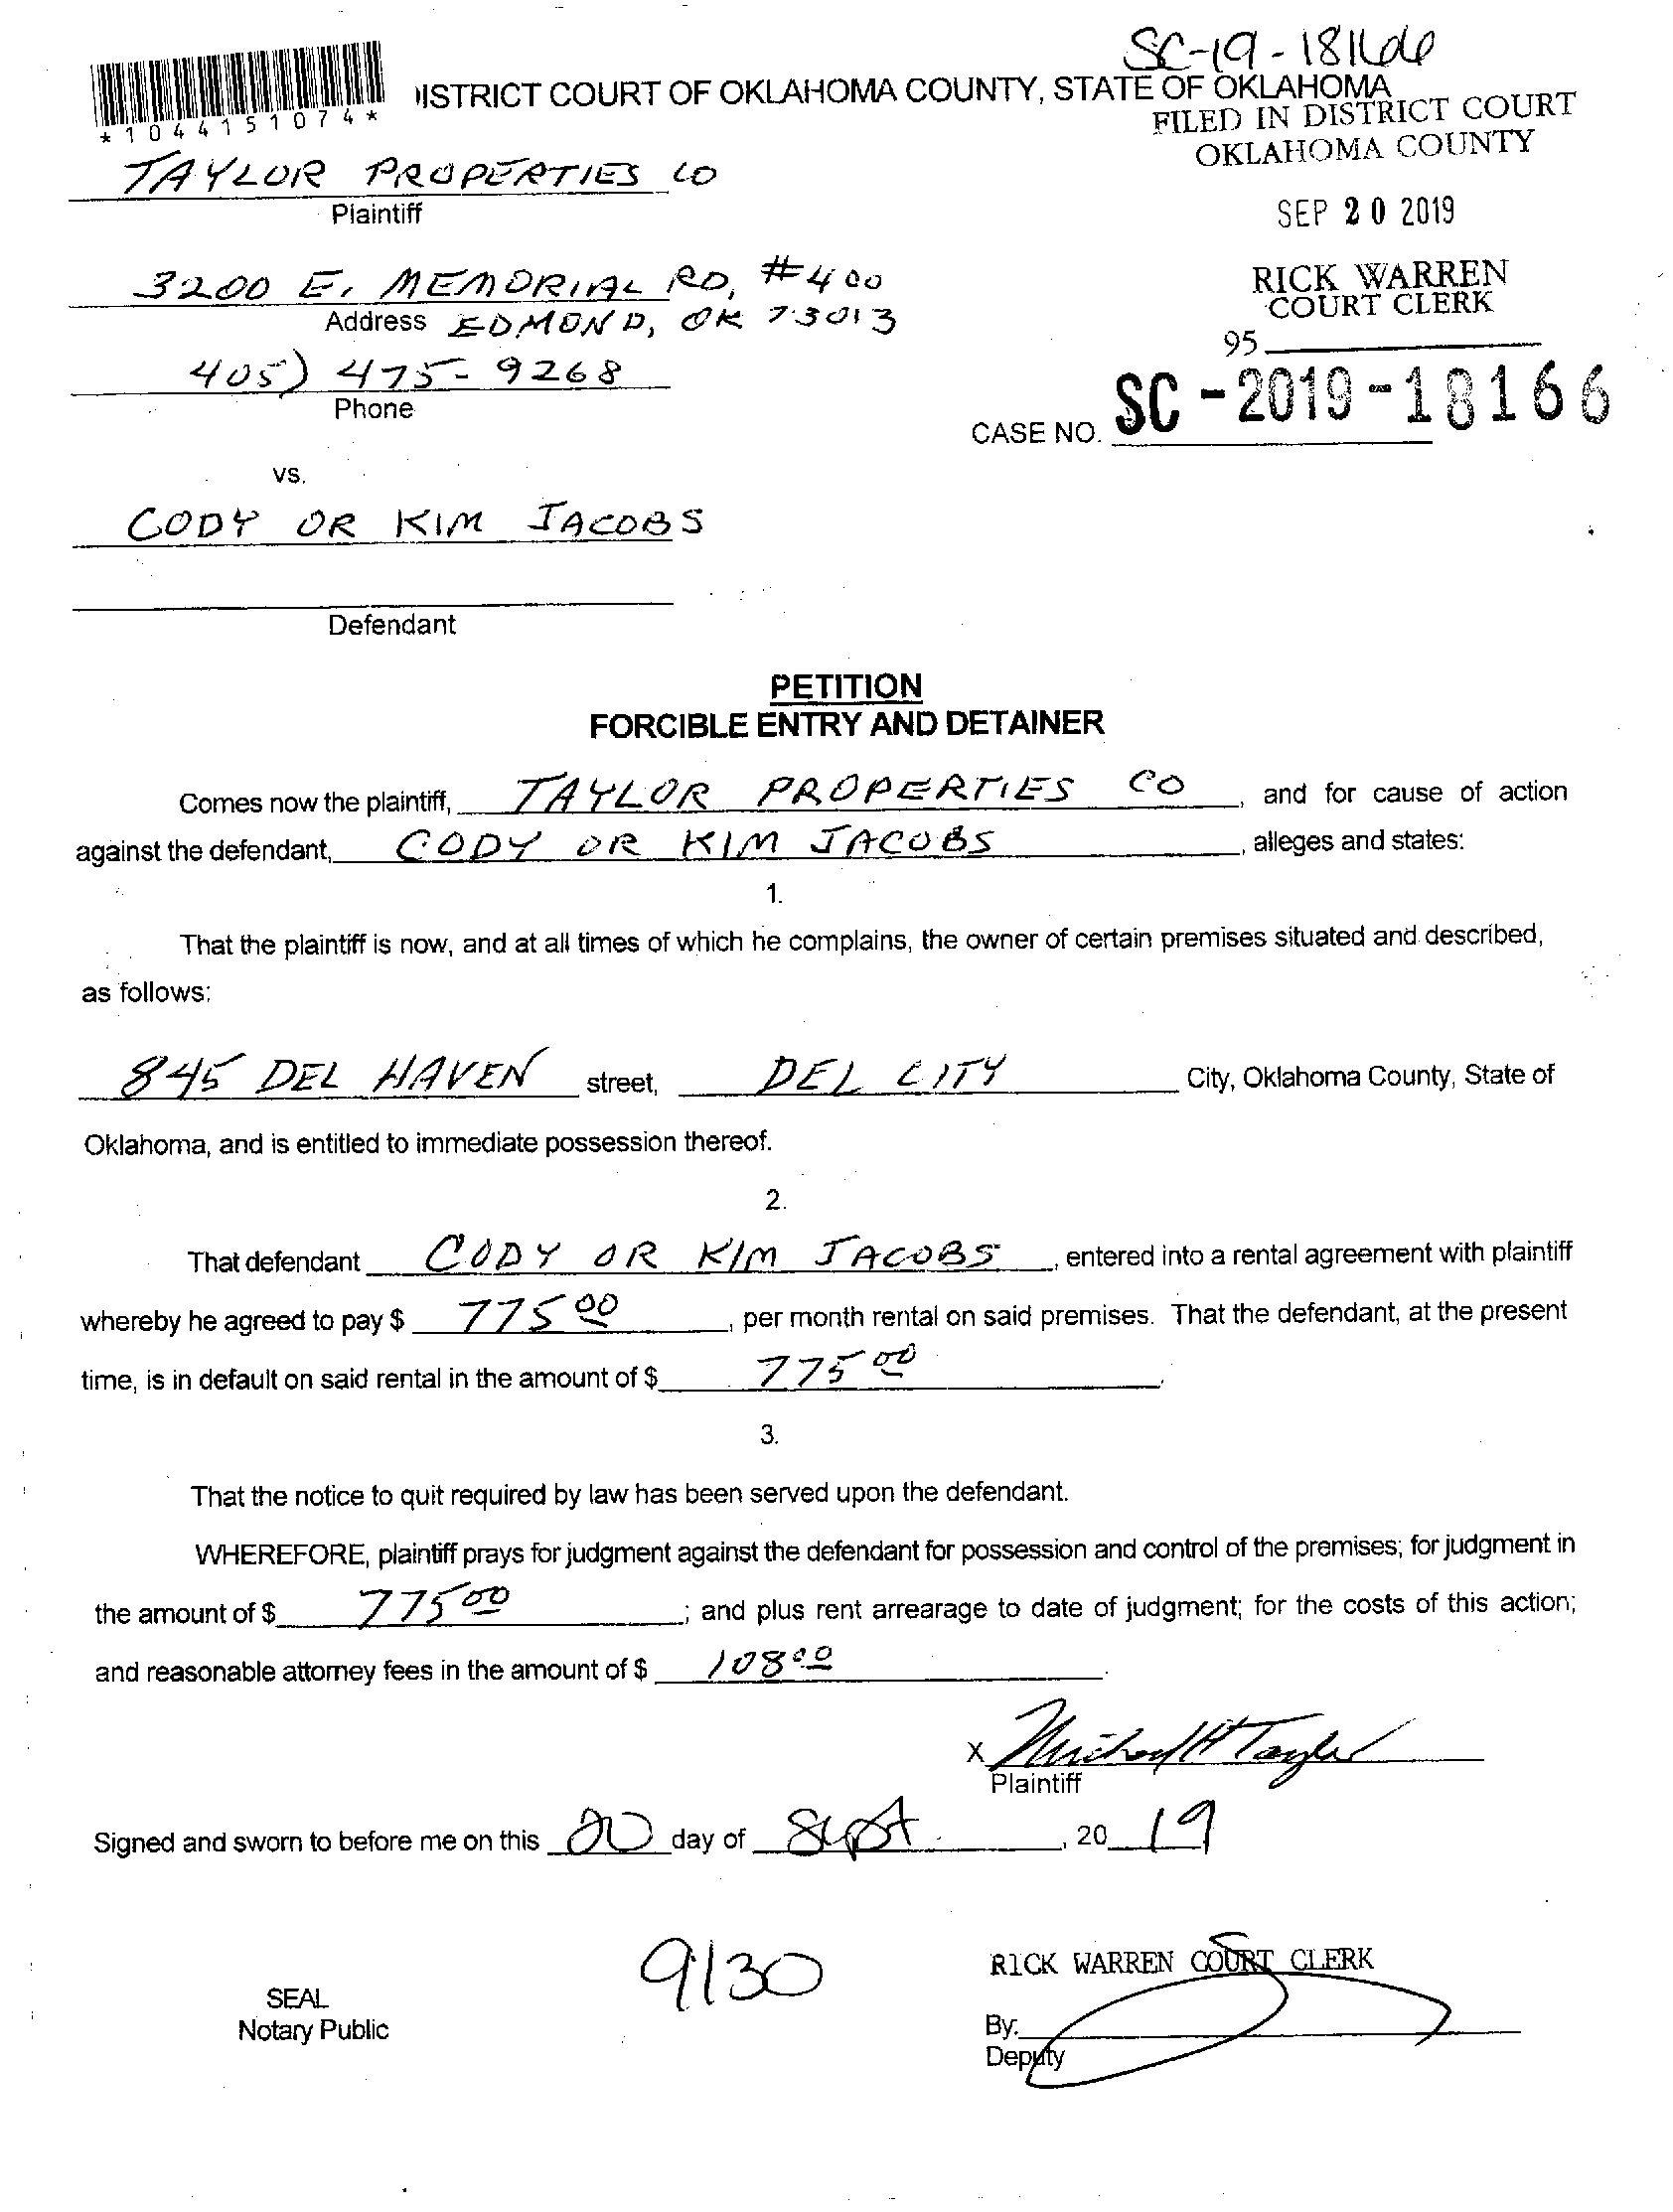 SC-19-18166
ISTRICT COURT OF OKLAHOMA COUNTY, STATE OF OKLAHOMA
*1044151074*
FILED IN DISTRICT COURT
OKLAHOMA COUNTY
TAYLOR PROPERTIES CO
Plaintiff
SEP 20 2019
3200 E. MEMORIAL RD, #400
Address EDMOND, OK 73013
RICK WARREN
COURT CLERK
95
405) 475-9268
Phone
CASE NO. SC-2019-18166
vs.
CODY OR KIM JACOBS
Defendant
PETITION
FORCIBLE ENTRY AND DETAINER
Comes now the plaintiff, TAYLOR PROPERTIES CO, and for cause of action
against the defendant, CODY OR KIM JACOBS, alleges and states:
1.
That the plaintiff is now, and at all times of which he complains, the owner of certain premises situated and described,
as follows:
845 DEL HAVEN street, DEL CITY City, Oklahoma County, State of
Oklahoma, and is entitled to immediate possession thereof.
2.
That defendant CODY OR KIM JACOBS, entered into a rental agreement with plaintiff
whereby he agreed to pay $ 775 00, per month rental on said premises. That the defendant, at the present
time, is in default on said rental in the amount of $ 775 00.
3.
That the notice to quit required by law has been served upon the defendant.
WHEREFORE, plaintiff prays for judgment against the defendant for possession and control of the premises; for judgment in
the amount of $ 775 00; and plus rent arrearage to date of judgment; for the costs of this action;
and reasonable attorney fees in the amount of $ 108 00.
X Michael H Taylor
Plaintiff
Signed and sworn to before me on this 20 day of Sept, 20 19
9/30
RICK WARREN COURT CLERK
SEAL
Notary Public
By:
Deputy